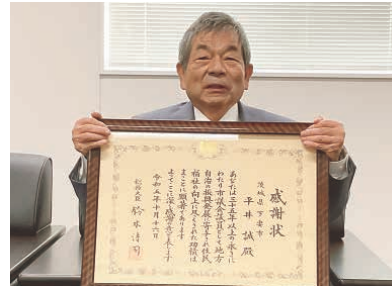 感謝状
茨城県下妻市
平井誠殿
あなたは三十五年以上の永きに
わたり市議会議員として地方
自治の振興発展に寄与され住民
福祉の向上に尽くされた功績は
まことに顕著であります
よってここに深く感謝の意を表します
令和五年十月十六日
総務大臣 鈴木淳司